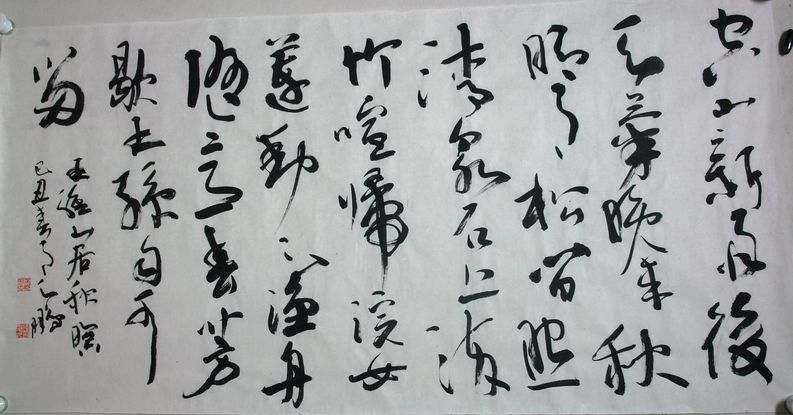 空山新雨後
天氣晚來秋
明月松間照
清泉石上流
竹喧歸浣女
蓮動下漁舟
隨意春芳
歇王孫自可
留
王維山居秋暝
己丑春月